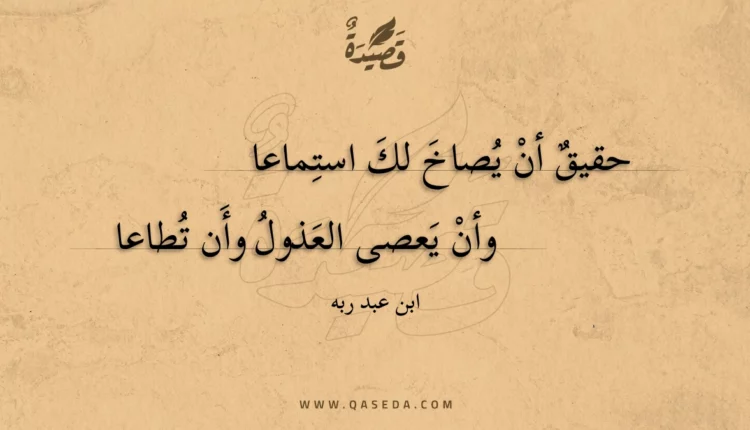 قَصِيدَةٌ
حقيقٌ أنْ يُصاخَ لكَ استِماعا
وأنْ يَعصى العَذولُ وأَن تُطاعا
ابن عبد ربه
WWW.QASEDA.COM